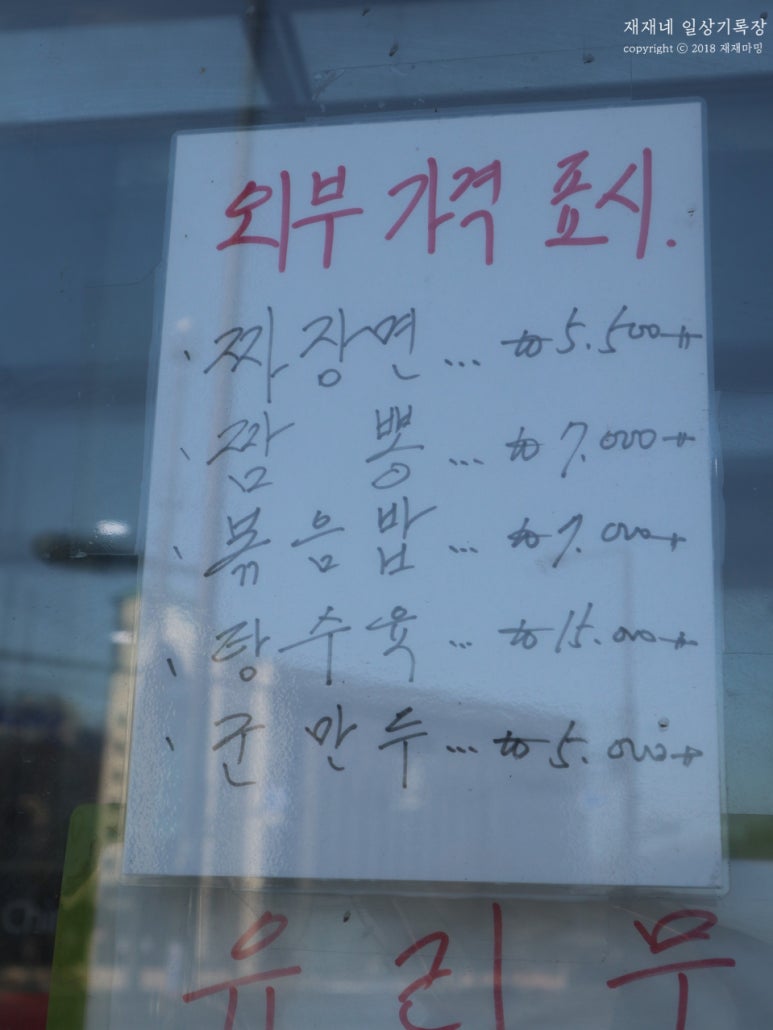 재재네 일상기록장
copyright ⓒ 2018 재재마밍
외부 가격 표시.
짜장면... ₩5.500
짬 뽕... ₩7.000
볶음밥... ₩7.000
탕수육... ₩15.000
군만두... ₩5.000
유리무